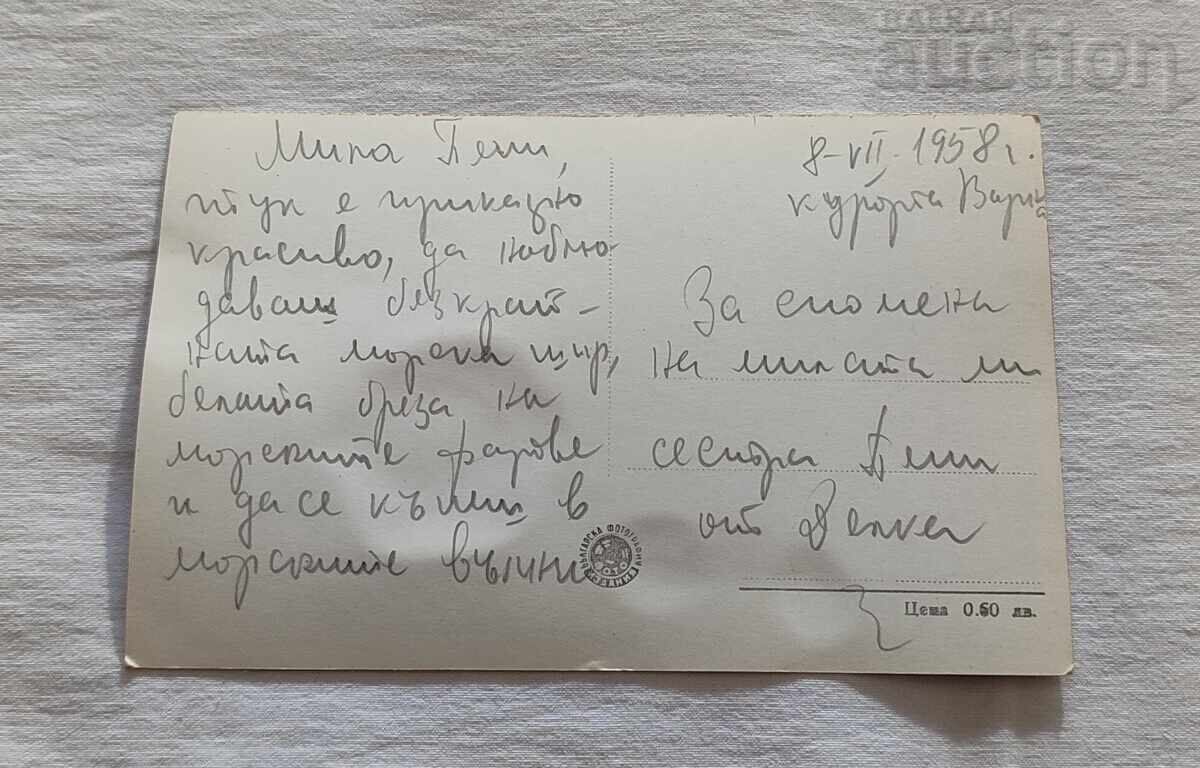 BALKAN
auction
Мила Пепи,
тук е приказно
красиво, да наблю
даваш безкрай-
ната морска шир,
белата бреза на
морските фарове
и да се къпиш в
морските вълни
8-VII-1958 г.
курорта Варна
За спомен на
на милата ми
сестра Пепи
от Денка
БЪЛГАРСКА ФОТОГРАФИЯ
Цена 0.60 лв.